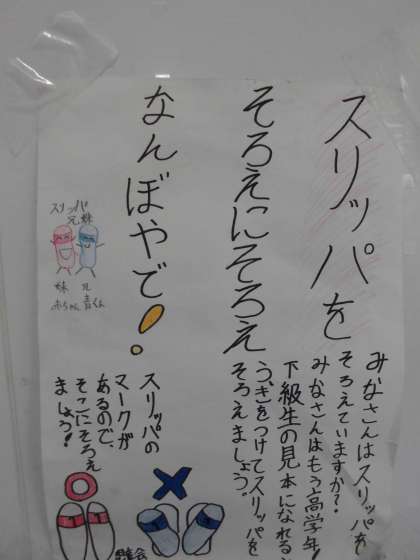 スリッパを
そろえにそろえ
なんぼやで!
スリッパ
兄妹
妹
赤ちゃん
兄
青くん
みなさんはスリッパを
そろえていますか?
みなさんはもう高学年!
下級生の見本になれる
う、きをつけてスリッパを
そろえましょう。
スリッパの
マークが
あるので、
そこにそろえ
ましょう!